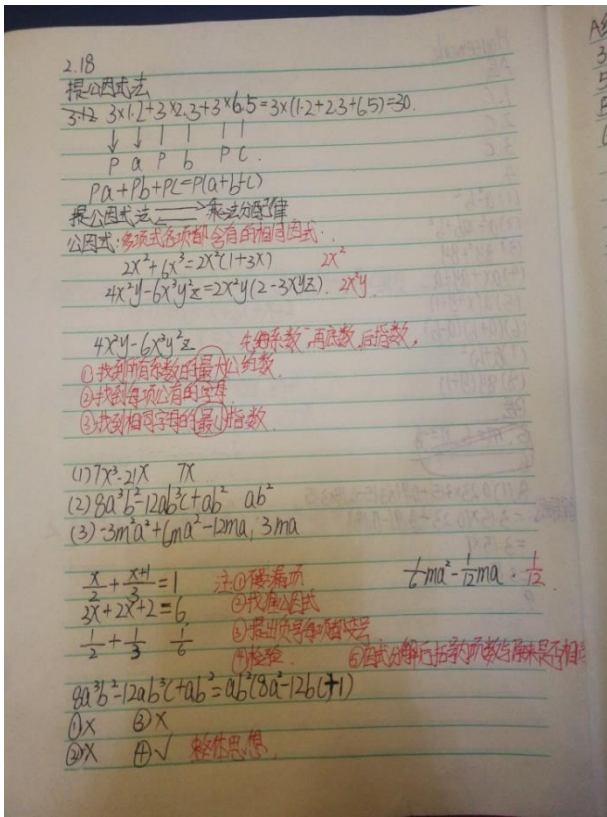 2.18
提公因式法
3.12 3×1.2+3×2.3+3×6.5=3×(1.2+2.3+6.5)=30.
↓ ↓ | | | |
P a P b P C.
Pa+Pb+PC=P(a+b+c)
提公因式法 ⇄ 乘法分配律
公因式:多项式各项都含有的相同因式.
2x²+6x³=2x²(1+3x) 2x²
4x²y-6x³y²z=2x²y(2-3xyz). 2x²y
4x²y-6x³y²z 先约系数,再底数,后指数.
①找到所有系数的最大公约数.
②找到每项公有的字母
③找到相同字母的最小指数.
(1)7x³-21x 7x
(2)8a³b²-12ab³c+ab² ab²
(3)-3m²a²+6ma²-12ma, 3ma
x/2+(x+1)/3=1 注:①确漏项 1/6ma²-1/12ma . 1/12
3x+2x+2=6 ②找准公因式
1/2+1/3 1/6 ③提出负号每项都变号
④检验 ⑤因式分解后括号内项数与原来是否相
8a³b²-12ab³c+ab²=ab²(8a²-12bc+1)
①× ③×
②× ④√ 整体思想.